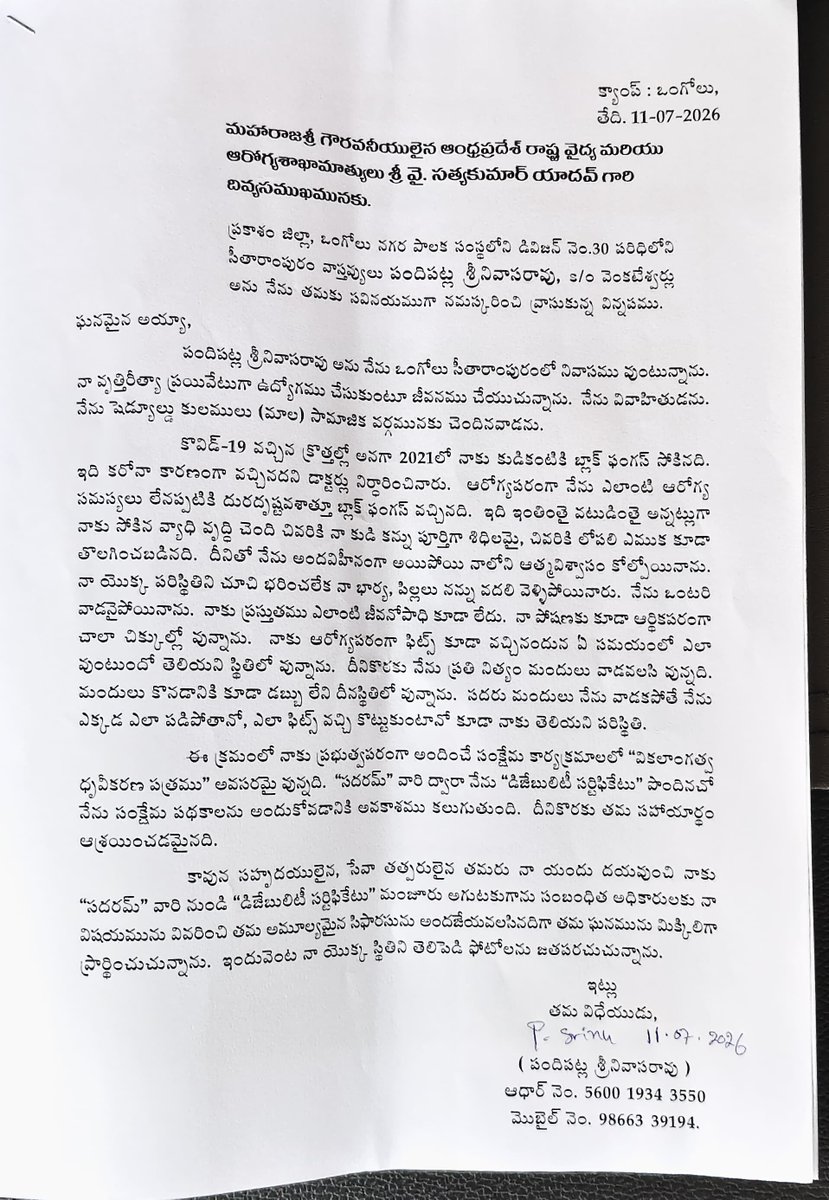 క్యాంప్ : ఒంగోలు,
తేది. 11-07-2026
మహారాజశ్రీ గౌరవనీయులైన ఆంధ్రప్రదేశ్ రాష్ట్ర వైద్య మరియు
ఆరోగ్యశాఖామాత్యులు శ్రీ వై. సత్యకుమార్ యాదవ్ గారి
దివ్యసముఖమునకు.
ప్రకాశం జిల్లా, ఒంగోలు నగర పాలక సంస్థలోని డివిజన్ నెం.30 పరిధిలోని
సీతారాంపురం వాస్తవ్యులు పందిపట్ల శ్రీనివాసరావు, s/o వెంకటేశ్వర్లు
అను నేను తమకు సవినయముగా నమస్కరించి వ్రాసుకున్న విన్నపము.
ఘనమైన అయ్యా,
పందిపట్ల శ్రీనివాసరావు అను నేను ఒంగోలు సీతారాంపురంలో నివాసము వుంటున్నాను.
నా వృత్తిరీత్యా ప్రయివేటుగా ఉద్యోగము చేసుకుంటూ జీవనము చేయుచున్నాను. నేను వివాహితుడను.
నేను షెడ్యూల్డు కులములు (మాల) సామాజిక వర్గమునకు చెందినవాడను.
కొవిడ్-19 వచ్చిన క్రొత్తల్లో అనగా 2021లో నాకు కుడికంటికి బ్లాక్ ఫంగస్ సోకినది.
ఇది కరోనా కారణంగా వచ్చినదని డాక్టర్లు నిర్ధారించినారు. ఆరోగ్యపరంగా నేను ఎలాంటి ఆరోగ్య
సమస్యలు లేనప్పటికి దురదృష్టవశాత్తూ బ్లాక్ ఫంగస్ వచ్చినది. ఇది ఇంతింతై వటుడింతై అన్నట్లుగా
నాకు సోకిన వ్యాధి వృద్ధి చెంది చివరికి నా కుడి కన్ను పూర్తిగా శిధిలమై, చివరికి లోపలి ఎముక కూడా
తొలగించబడినది. దీనితో నేను అందవిహీనంగా అయిపోయి నాలోని ఆత్మవిశ్వాసం కోల్పోయినాను.
నా యొక్క పరిస్థితిని చూచి భరించలేక నా భార్య, పిల్లలు నన్ను వదలి వెళ్ళిపోయినారు. నేను ఒంటరి
వాడనైపోయినాను. నాకు ప్రస్తుతము ఎలాంటి జీవనోపాధి కూడా లేదు. నా పోషణకు కూడా ఆర్థికపరంగా
చాలా చిక్కుల్లో వున్నాను. నాకు ఆరోగ్యపరంగా ఫిట్స్ కూడా వచ్చినందున ఏ సమయంలో ఎలా
వుంటుందో తెలియని స్థితిలో వున్నాను. దీనికొరకు నేను ప్రతి నిత్యం మందులు వాడవలసి వున్నది.
మందులు కొనడానికి కూడా డబ్బు లేని దీనస్థితిలో వున్నాను. సదరు మందులు నేను వాడకపోతే నేను
ఎక్కడ ఎలా పడిపోతానో, ఎలా ఫిట్స్ వచ్చి కొట్టుకుంటానో కూడా నాకు తెలియని పరిస్థితి.
ఈ క్రమంలో నాకు ప్రభుత్వపరంగా అందించే సంక్షేమ కార్యక్రమాలలో “వికలాంగత్వ
ధృవీకరణ పత్రము” అవసరమై వున్నది. “సదరమ్” వారి ద్వారా నేను “డిజేబులిటీ సర్టిఫికేటు” పొందినచో
నేను సంక్షేమ పథకాలను అందుకోవడానికి అవకాశము కలుగుతుంది. దీనికొరకు తమ సహాయార్థం
ఆశ్రయించడమైనది.
కావున సహృదయులైన, సేవా తత్పరులైన తమరు నా యందు దయవుంచి నాకు
“సదరమ్” వారి నుండి “డిజేబులిటీ సర్టిఫికేటు” మంజూరు అగుటకుగాను సంబంధిత అధికారులకు నా
విషయమును వివరించి తమ అమూల్యమైన సిఫారసును అందజేయవలసినదిగా తమ ఘనమును మిక్కిలిగా
ప్రార్థించుచున్నాను. ఇందువెంట నా యొక్క స్థితిని తెలిపెడి ఫోటోలను జతపరచుచున్నాను.
ఇట్లు
తమ విధేయుడు,
P. Srinu 11.07.2026
( పందిపట్ల శ్రీనివాసరావు )
ఆధార్ నెం. 5600 1934 3550
మొబైల్ నెం. 98663 39194.